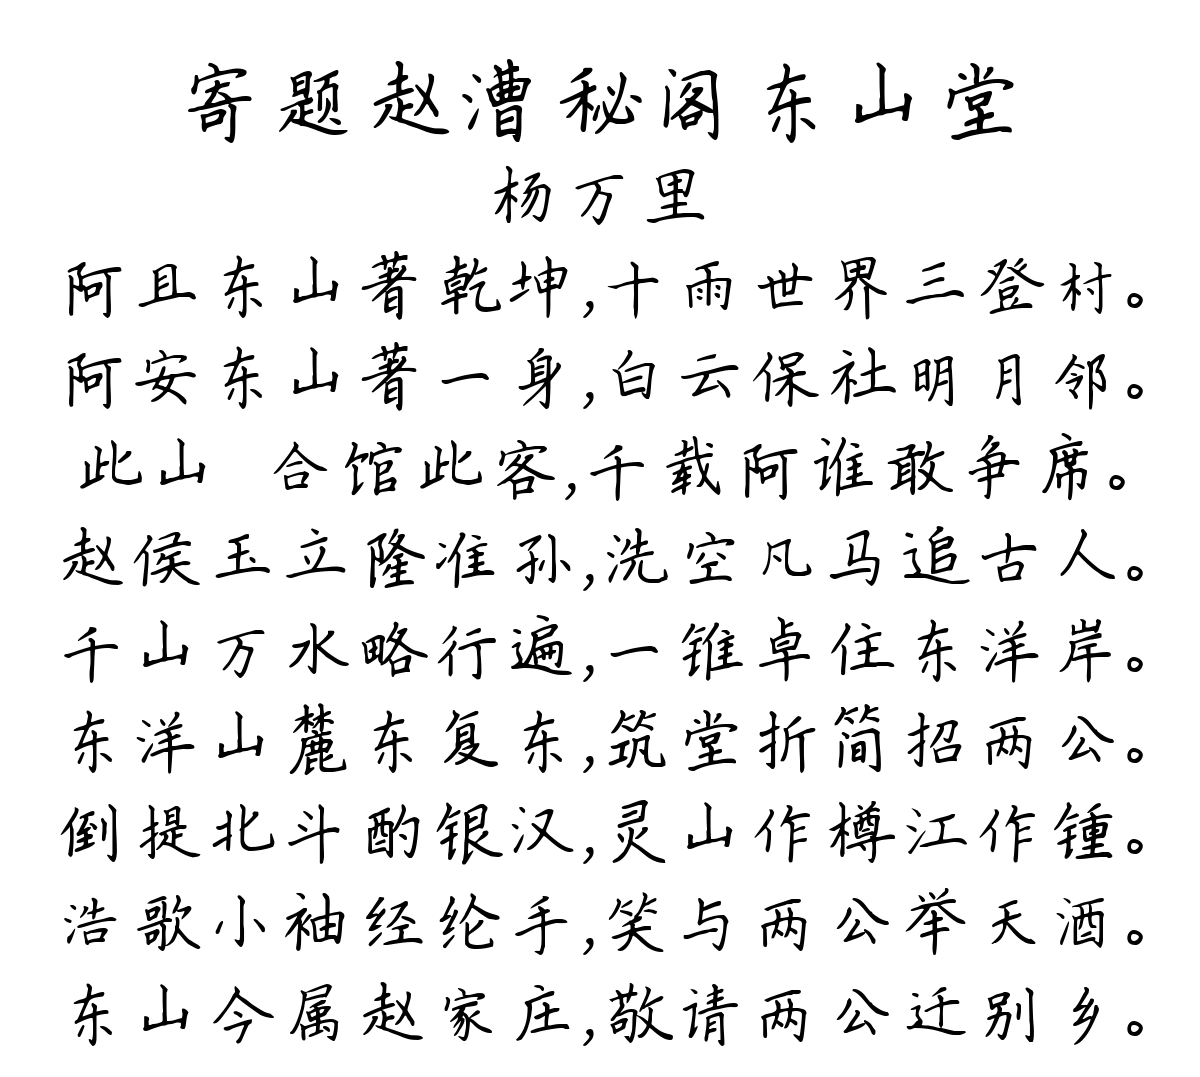 寄题赵漕秘阁东山堂
杨万里
阿且东山著乾坤,十雨世界三登村。
阿安东山著一身,白云保社明月邻。
此山 合馆此客,千载阿谁敢争席。
赵侯玉立隆准孙,洗空凡马追古人。
千山万水略行遍,一锥卓住东洋岸。
东洋山麓东复东,筑堂折简招两公。
倒提北斗酌银汉,灵山作樽江作锺。
浩歌小袖经纶手,笑与两公举天酒。
东山今属赵家庄,敬请两公迁别乡。